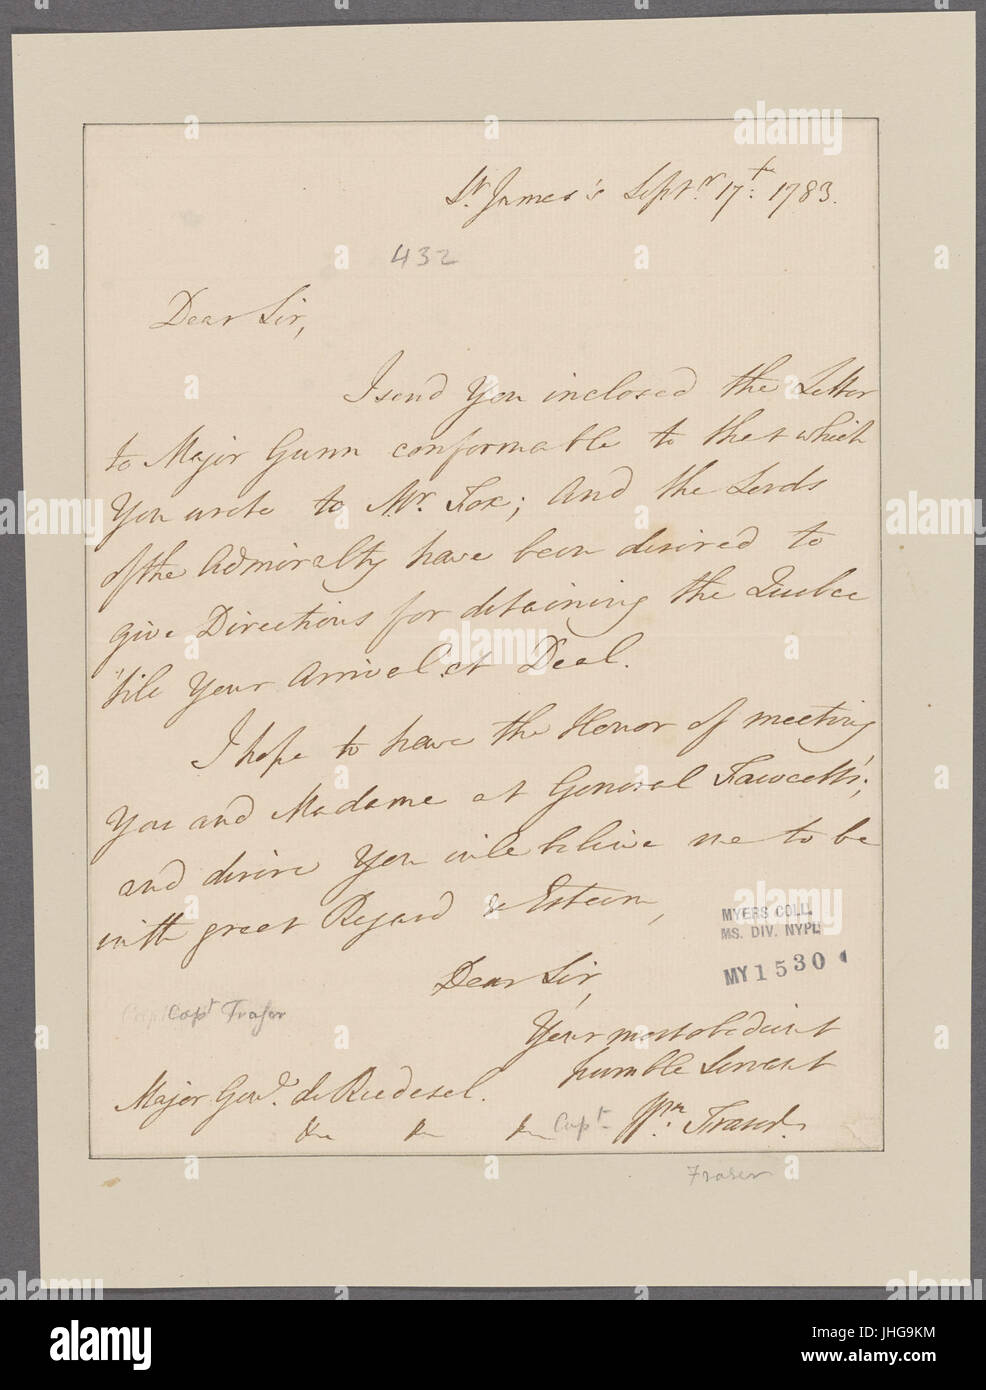 St. James's Septr. 17t: 1783.
432
Dear Sir,
I send You inclosed the Letter
to Major Gunn conformable to that which
You wrote to Mr. Fox; and the Lords
of the Admiralty have been desired to
give Directions for detaining the Quebec
'till Your Arrival at Deal.
I hope to have the Honor of meeting
You and Madame at General Fawcett's;
and desire You will believe me to be
with great Regard & Esteem,
Dear Sir,
Your most obedient
humble Servant
Wm. Fraser.
Capt
Capt Fraser
Major Genl. de Riedesel.
&c &c &c
Fraser
MYERS COLL.
MS. DIV. NYPL
MY 1530
alamy
Image ID: JHG9KM
www.alamy.com